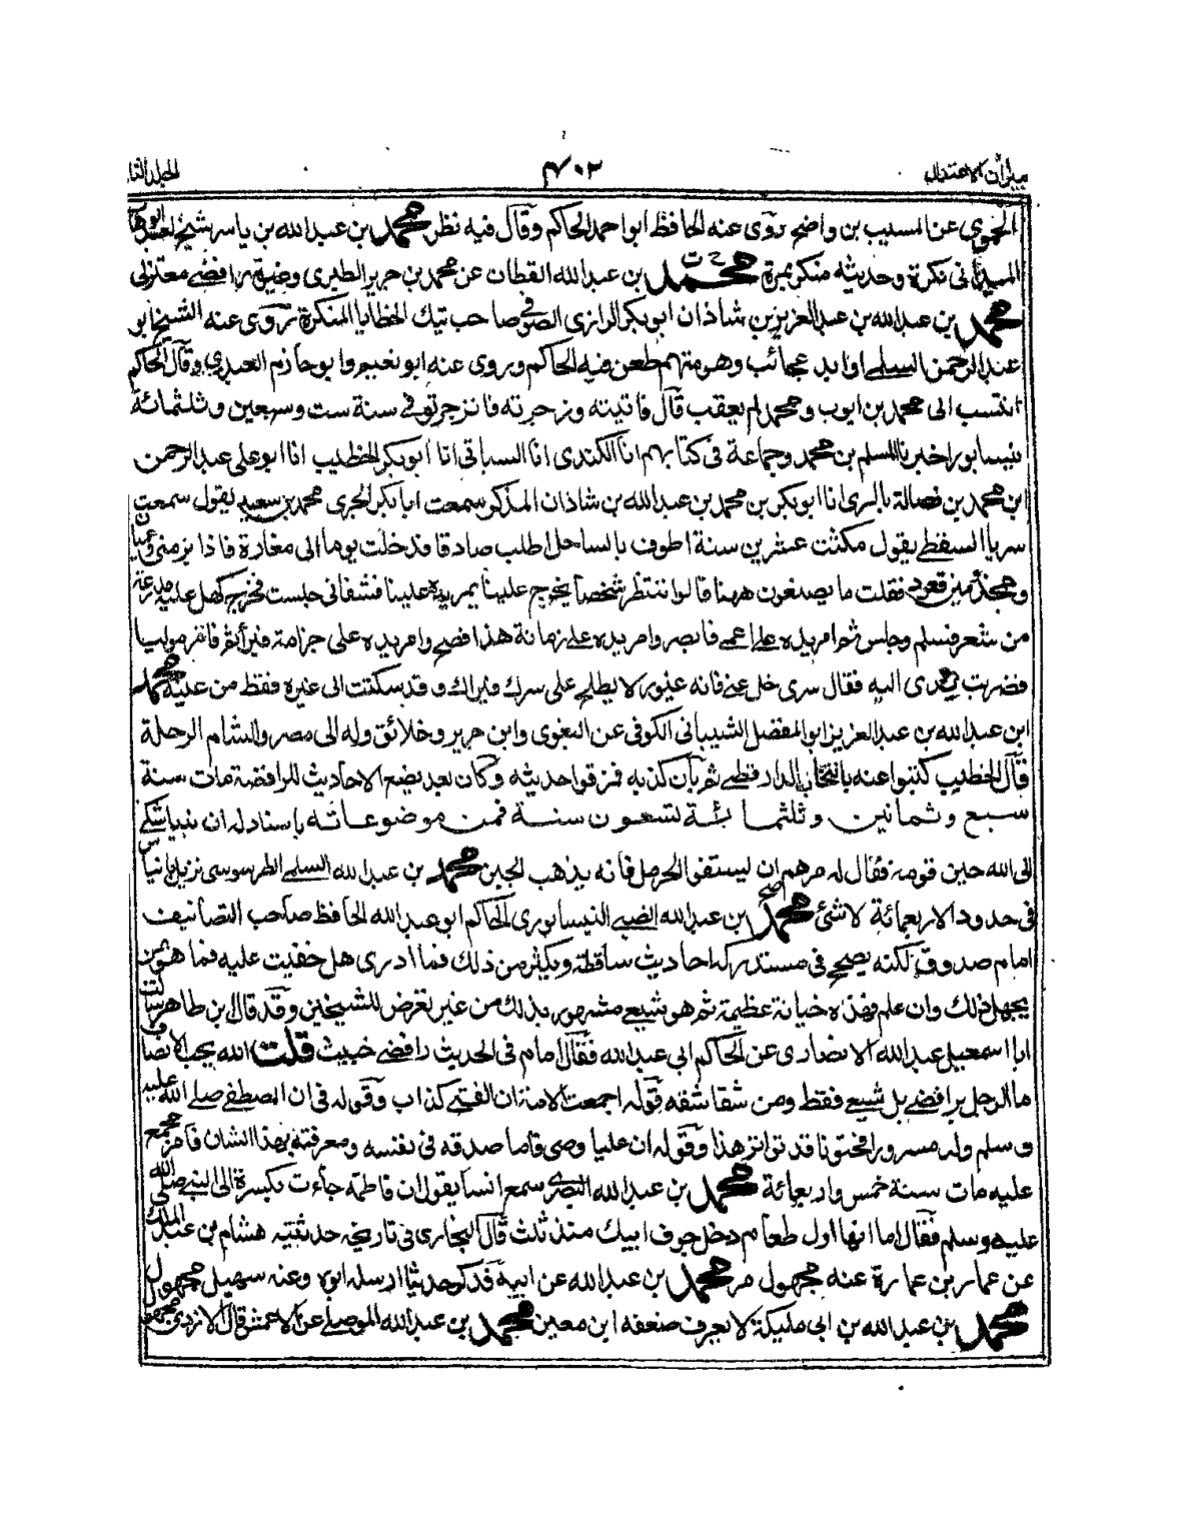 ميزان الاعتدال ٤٠٣ المجلد الثا
الحموي عن المسيب بن واضح روى عنه الحافظ ابو احمد الحاكم وقال فيه نظر محمد بن عبد الله بن ياسر شيخ
الميداني نكرة وحديثه منكر بمرة محمد بن عبد الله القطان عن محمد بن جرير الطبري رافضي معتزلي
محمد بن عبد الله بن عبد العزيز بن شاذان ابو بكر الرازي الصوفي صاحب تيك الحظايا المنكرة روى عنه الشيخ ابو
عبد الرحمن السلمي اوابد عجائب وهو متهم طعن فيه الحاكم وروى عنه ابو نعيم وابو حازم العبدري وقال الحاكم
انتسب الى محمد بن ايوب ومحمد لم يعقب قال فاتيته وزجرته فانزجر توفي سنة ست وسبعين وثلثمائة
بنيسابور اخبرنا المسلم بن محمد وجماعة في كتابهم انا الكندي انا الشيباني انا ابو بكر الخطيب انا ابو علي عبد الرحمن
ابن محمد بن فضالة بالري انا ابو بكر بن محمد بن عبد الله بن شاذان المذكر سمعت ابا بكر الحربي محمد بن سعيد يقول سمعت
سريا السقطي يقول مكثت عشرين سنة اطوف بالساحل اطلب صادقا فدخلت يوما الى مغارة فاذا بزمنى وعميان
ومجذمين قعود فقلت ما يصنعون ههنا قالوا ننتظر شخصا يخرج علينا يمر يده علينا فشفانى جلست فخرج كهل عليه مدرعة
من شعر فسلم وجلس ثم امر يده على اعمى فابصر وامر يده على زمانة هذا فصح وامر يده على جزامة فبرأ ثم قام موليا
فضربت يدي اليه فقال سري خل عني فانه غيور لا يطلع على سرك فيراك وقد سكنت الى غيره فقط من عليه محمد
ابن عبد الله بن عبد العزيز ابو المفضل الشيباني الكوفي عن البغوي وابن جرير وخلائق وله الى مصر والشام الرحلة
قال الخطيب كتبوا عنه بانتخاب الدارقطني ثم بان كذبه فمزقوا حديثه وكان بعد يضع الاحاديث للرافضة مات سنة
سبع وثمانين وثلثمائة تسعون سنة فمن موضوعاته باسناد له ان نبيا شكى
الى الله حين قومه فقال له مرهم ان ليستفوا الحرمل فانه يذهب الجبن محمد بن عبد الله السلمي الطرسوسي نزيل بانياس
في حدود الاربعمائة لا شئ محمد بن عبد الله الضبي النيسابوري الحاكم ابو عبد الله الحافظ صاحب التصانيف
امام صدوق لكنه يصحح في مستدركه احاديث ساقطة ويكثر من ذلك فما ادرى هل خفيت عليه فما هو ممن
يجهل ذلك وان علم فهذه خيانة عظيمة ثم هو شيعي مشهور بذلك من غير تعرض للشيخين وقد قال ابن طاهر سألت
ابا اسمعيل عبد الله الانصاري عن الحاكم ابي عبد الله فقال امام في الحديث رافضي خبيث قلت الله يحب الانصاف
ما الرجل برافضي بل شيعي فقط ومن شقاشقه قوله اجمعت الامة ان القتبي كذاب وقوله في ان المصطفى صلى الله عليه
وسلم ولد مسرورا مختونا قد تواتر هذا وقوله ان عليا وصي فاما صدقه في نفسه ومعرفته بهذا الشان فامر مجمع
عليه مات سنة خمس واربعمائة محمد بن عبد الله البصري سمع انسا يقول ان فاطمة جاءت بكسرة الى النبي صلى الله
عليه وسلم فقال اما انها اول طعام دخل جوف ابيك منذ ثلث قال البخاري في تاريخه حدثنيه هشام بن عبد الملك
عن عمار بن عمارة عنه مجهول مر محمد بن عبد الله عن ابيه فذكر حديثا ارسله ابوه وعنه سهيل مجهول
محمد بن عبد الله بن ابي مليكة لا يعرف ضعفه ابن معين محمد بن عبد الله الموصلي عن الاعمش قال الازدي مجهول